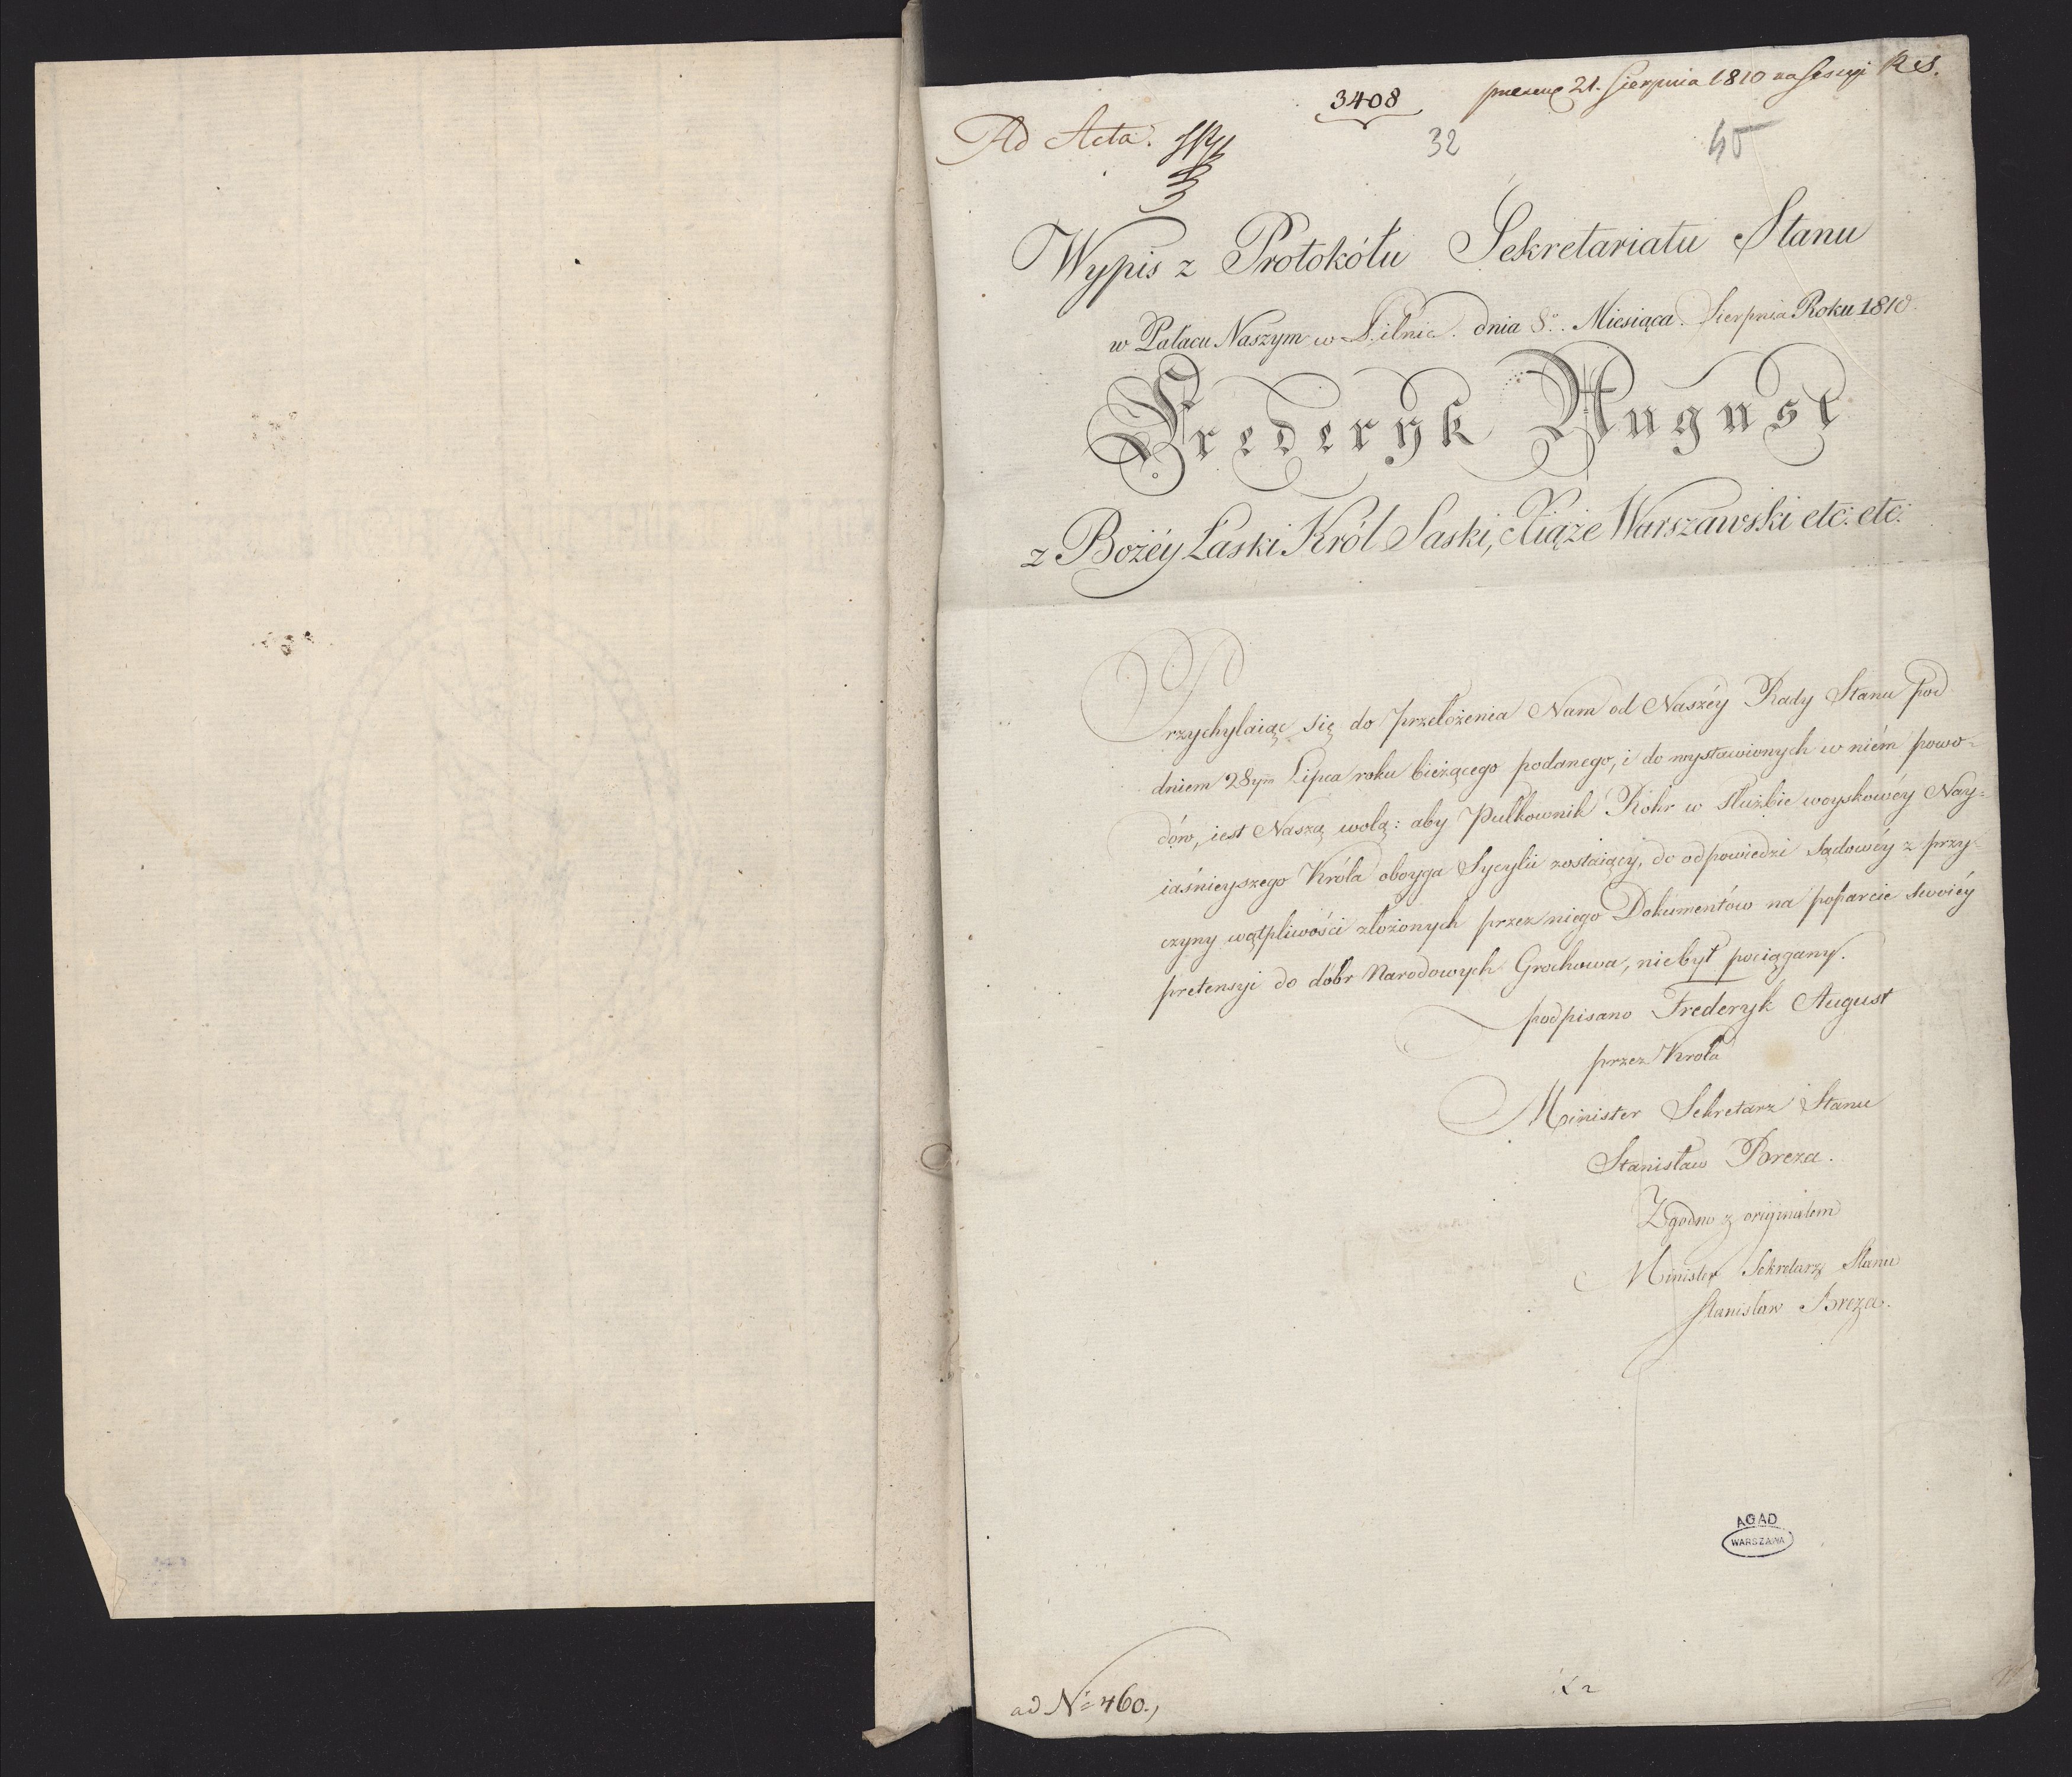 3408
present 21. Sierpnia 1810 na Sessyi RS.
Ad Acta.
32
45
Wypis z Protokółu Sekretariatu Stanu
w Pałacu Naszym w Pilnic. dnia 8o. Miesiąca Sierpnia Roku 1810.
Frederyk August
z Bożéy Łaski Król Saski, Xiąże Warszawski etc: etc:
Przychylaiąc się do przełożenia Nam od Naszéy Rady Stanu pod
dniem 28ym Lipca roku bieżącego podanego, i do wystawionych w niém powo-
dów, iest Naszą wolą: aby Pułkownik Röhr w służbie woyskowéy Nay-
iaśnieyszego Króla oboyga Sycylii zostaiący, do odpowiedzi Sądowéy z przy-
czyny wątpliwości złożonych przez niego Dokumentów na poparcie swoiéy
pretensyi do dóbr Narodowych Grochowa, niebył pociągany.
podpisano Frederyk August
przez Krola
Minister Sekretarz Stanu
Stanisław Breza.
Zgodno z originałem
Minister Sekretarz Stanu
Stanisław Breza.
AGAD
WARSZAWA
ad No 460.,